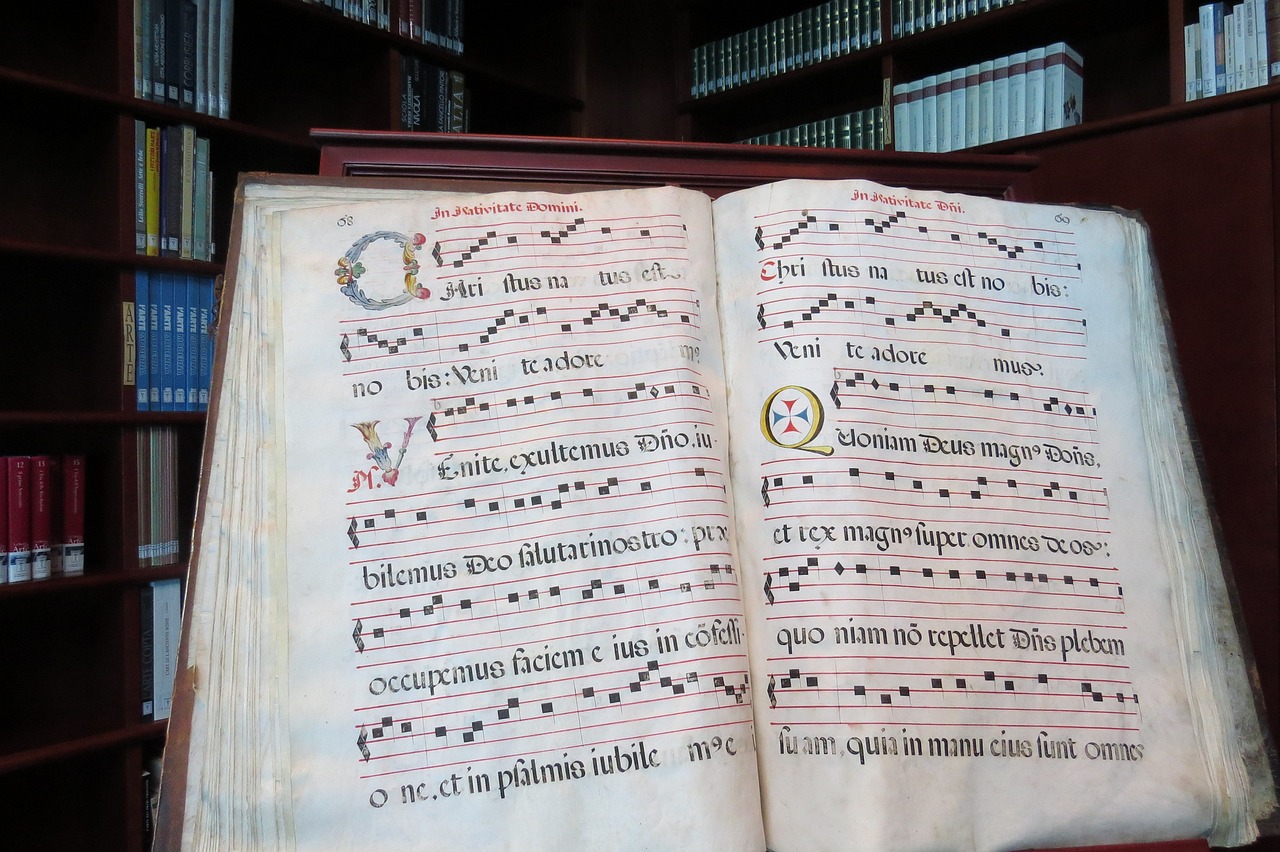 68
In Nativitate Domini.
CHri stus na tus est
no bis: Veni te adore m9
Ps. VEnite, exultemus Dño, iu-
bilemus Deo salutari nostro: præ
occupemus faciem e ius in cõfessi-
o ne, et in psalmis iubile m9 e
60
In Nativitate Dñi.
Chri stus na tus est no bis:
Veni te adore mus.
Quoniam Deus magn9 Doñs,
et rex magn9 super omnes deos:
quo niam nõ repellet Dñs plebem
suam, quia in manu eius sunt omnes
ARTE
L'ARTE
L'ARTE
L'ARTE
L'ARTE
L'ARTE